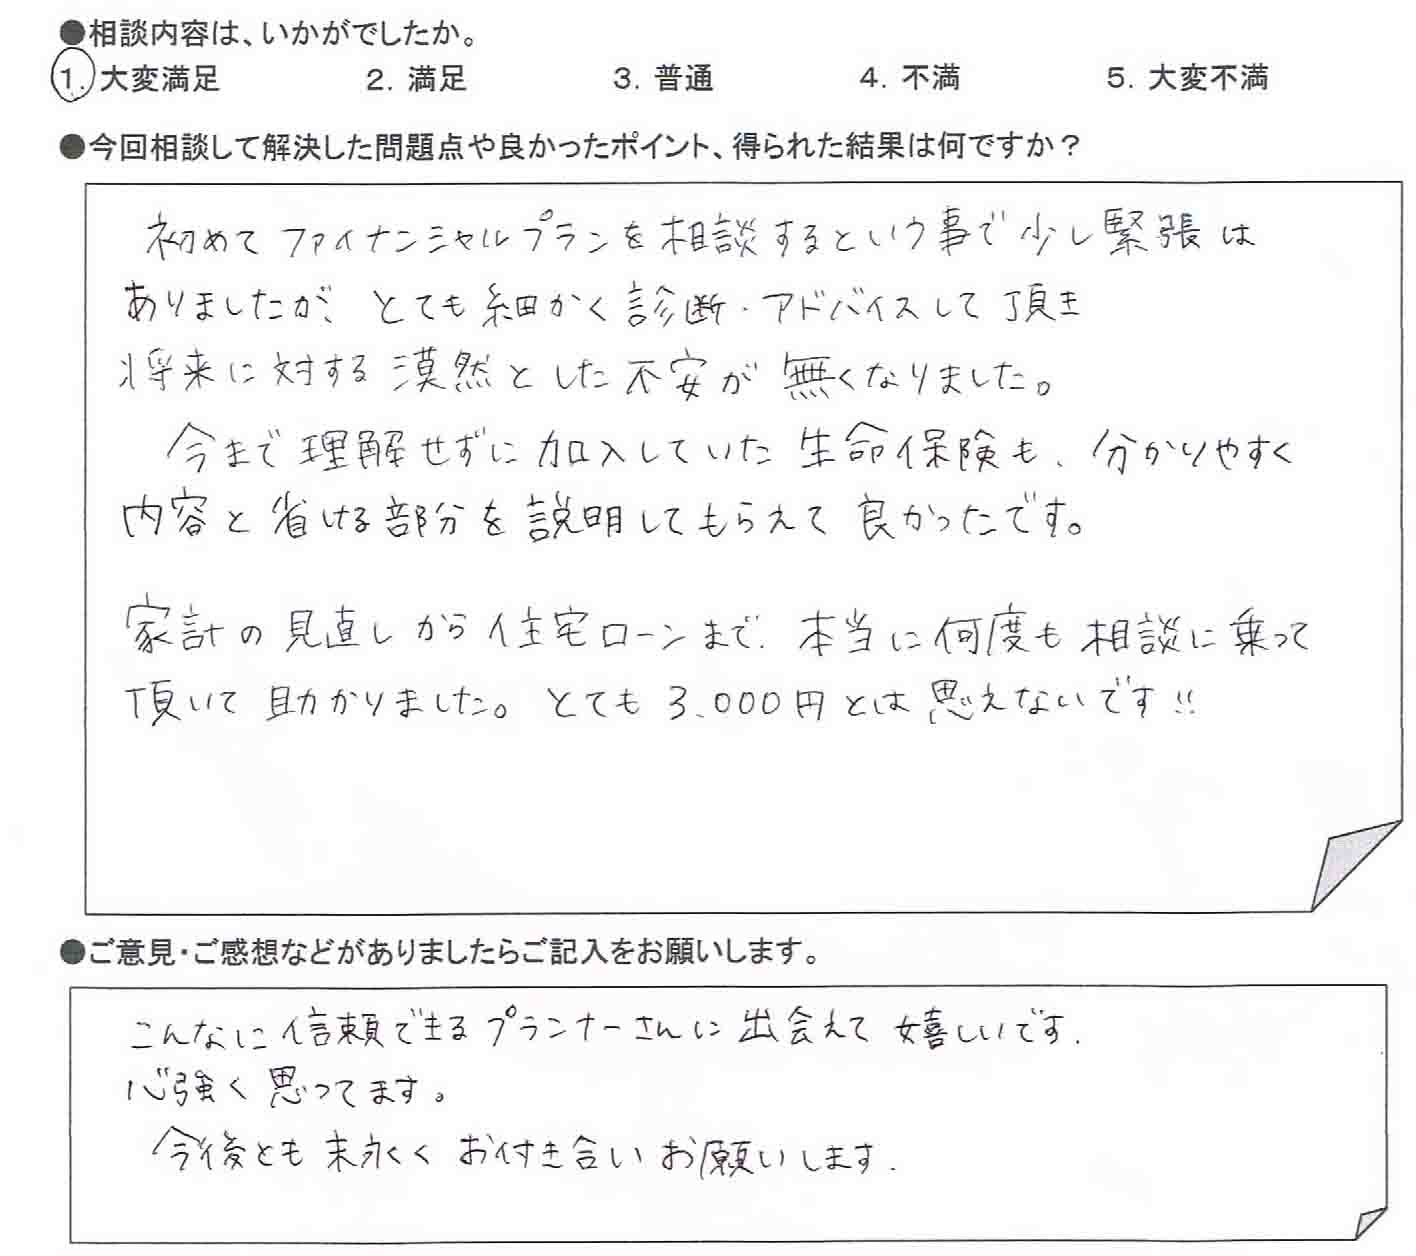 ●相談内容は、いかがでしたか。
1. 大変満足 2. 満足 3. 普通 4. 不満 5. 大変不満
●今回相談して解決した問題点や良かったポイント、得られた結果は何ですか？
初めてファイナンシャルプランを相談するという事で少し緊張は
ありましたが、とても細かく診断・アドバイスして頂き
将来に対する漠然とした不安が無くなりました。
今まで理解せずに加入していた生命保険も、分かりやすく
内容と省ける部分を説明してもらえて良かったです。
家計の見直しから住宅ローンまで、本当に何度も相談に乗って
頂いて助かりました。とても3,000円とは思えないです!!
●ご意見・ご感想などがありましたらご記入をお願いします。
こんなに信頼できるプランナーさんに出会えて嬉しいです.
心強く思ってます。
今後とも末永くお付き合いお願いします.